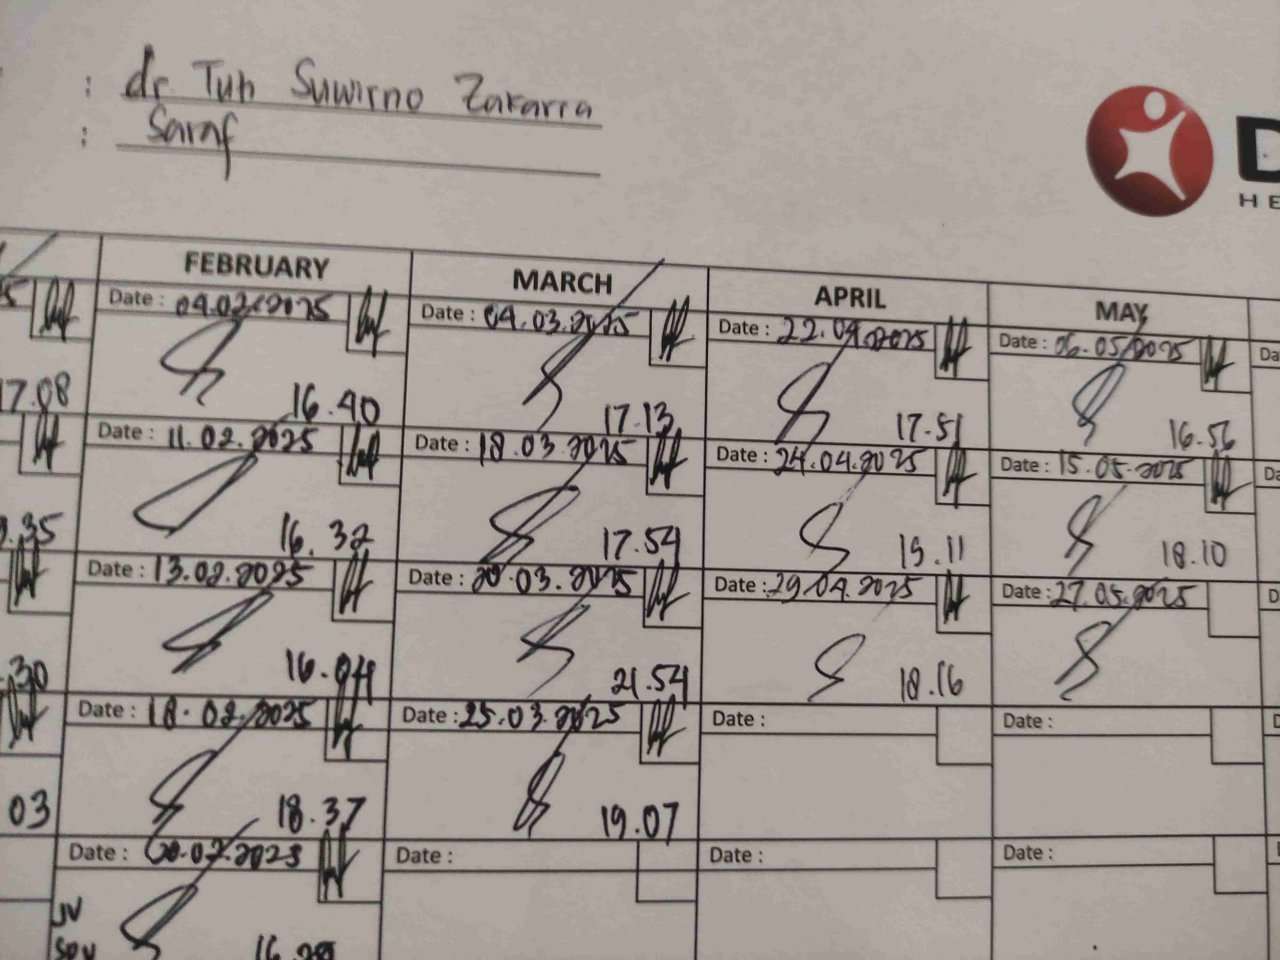 : dr Tuh Suwirno Zakaria
: Saraf
D
HE
FEBRUARY MARCH APRIL MAY
Date : 04.02.2025 Date : 04.03.2025 Date : 22.04.2025 Date : 06.05.2025 Da
17.08 16.40 17.13 17.51 16.56
Date : 11.02.2025 Date : 18.03.2025 Date : 24.04.2025 Date : 15.05.2025 Da
.35 16.32 17.54 19.11 18.10
Date : 13.02.2025 Date : 20.03.2025 Date : 29.04.2025 Date : 27.05.2025 D
.30 16.04 21.54 18.16
Date : 18.02.2025 Date : 25.03.2025 Date : Date :
03 18.37 19.07
Date : 20.02.2025 Date : Date : Date :
JV
SPV